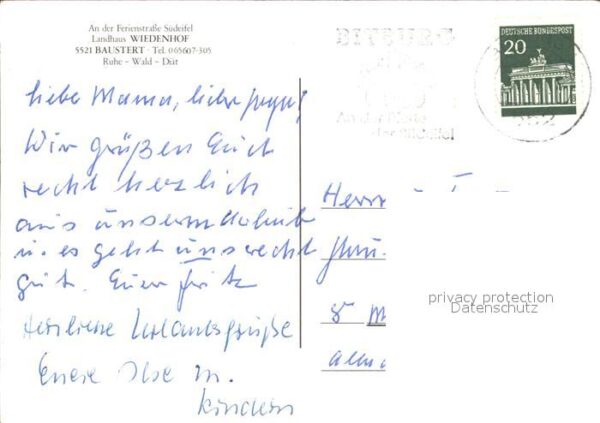 An der Ferienstraße Südeifel
Landhaus WIEDENHOF
5521 BAUSTERT · Tel. 0 65607-305
Ruhe – Wald – Diät
BITBURG
DEUTSCHE BUNDESPOST
20
liebe Mama, lieber
Wir grüßen Euch
recht herzlich
aus unserm
u. es geht uns recht
gut. Euer Fritz
Herzliche Urlaubsgrüße
Euere Ilse m.
Kindern
Herrn
8 M
privacy protection
Datenschutz